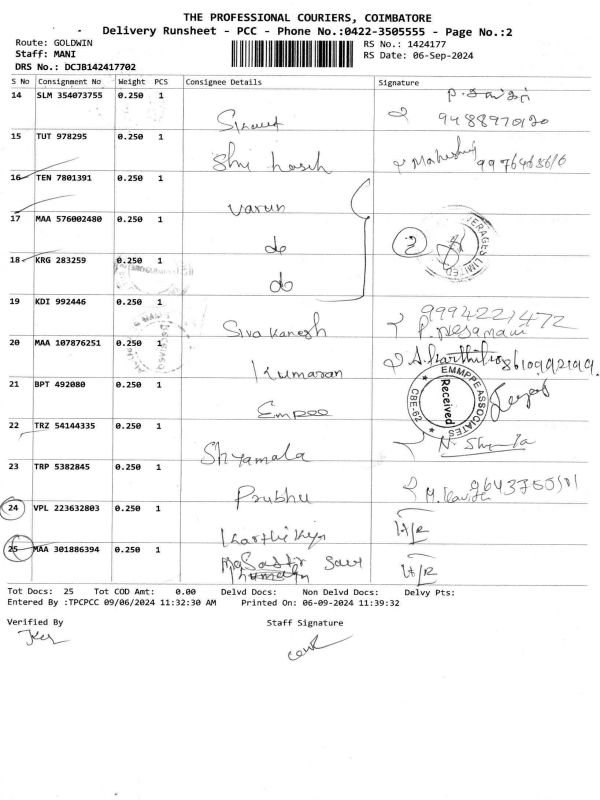 THE PROFESSIONAL COURIERS, COIMBATORE
Delivery Runsheet - PCC - Phone No.:0422-3505555 - Page No.:2
Route: GOLDWIN
RS No.: 1424177
Staff: MANI
RS Date: 06-Sep-2024
DRS No.: DCJB142417702
S No Consignment No Weight PCS Consignee Details Signature
14 SLM 354073755 0.250 1
15 TUT 978295 0.250 1 Shri
16 TEN 7801391 0.250 1 Varun
17 MAA 576002480 0.250 1 do 2
18 KRG 283259 0.250 1 do
19 KDI 992446 0.250 1 Siva Kanesh 9994221472
20 MAA 107876251 0.250 1 Kumaran
21 BPT 492080 0.250 1 Empee EMMPPE ASSOCIATES Received CBE-62
22 TRZ 54144335 0.250 1 Shyamala
23 TRP 5382845 0.250 1 Prubhu
24 VPL 223632803 0.250 1 H/R
25 MAA 301886394 0.250 1 H/R
Tot Docs: 25 Tot COD Amt: 0.00 Delvd Docs: Non Delvd Docs: Delvy Pts:
Entered By :TPCPCC 09/06/2024 11:32:30 AM Printed On: 06-09-2024 11:39:32
Verified By Staff Signature